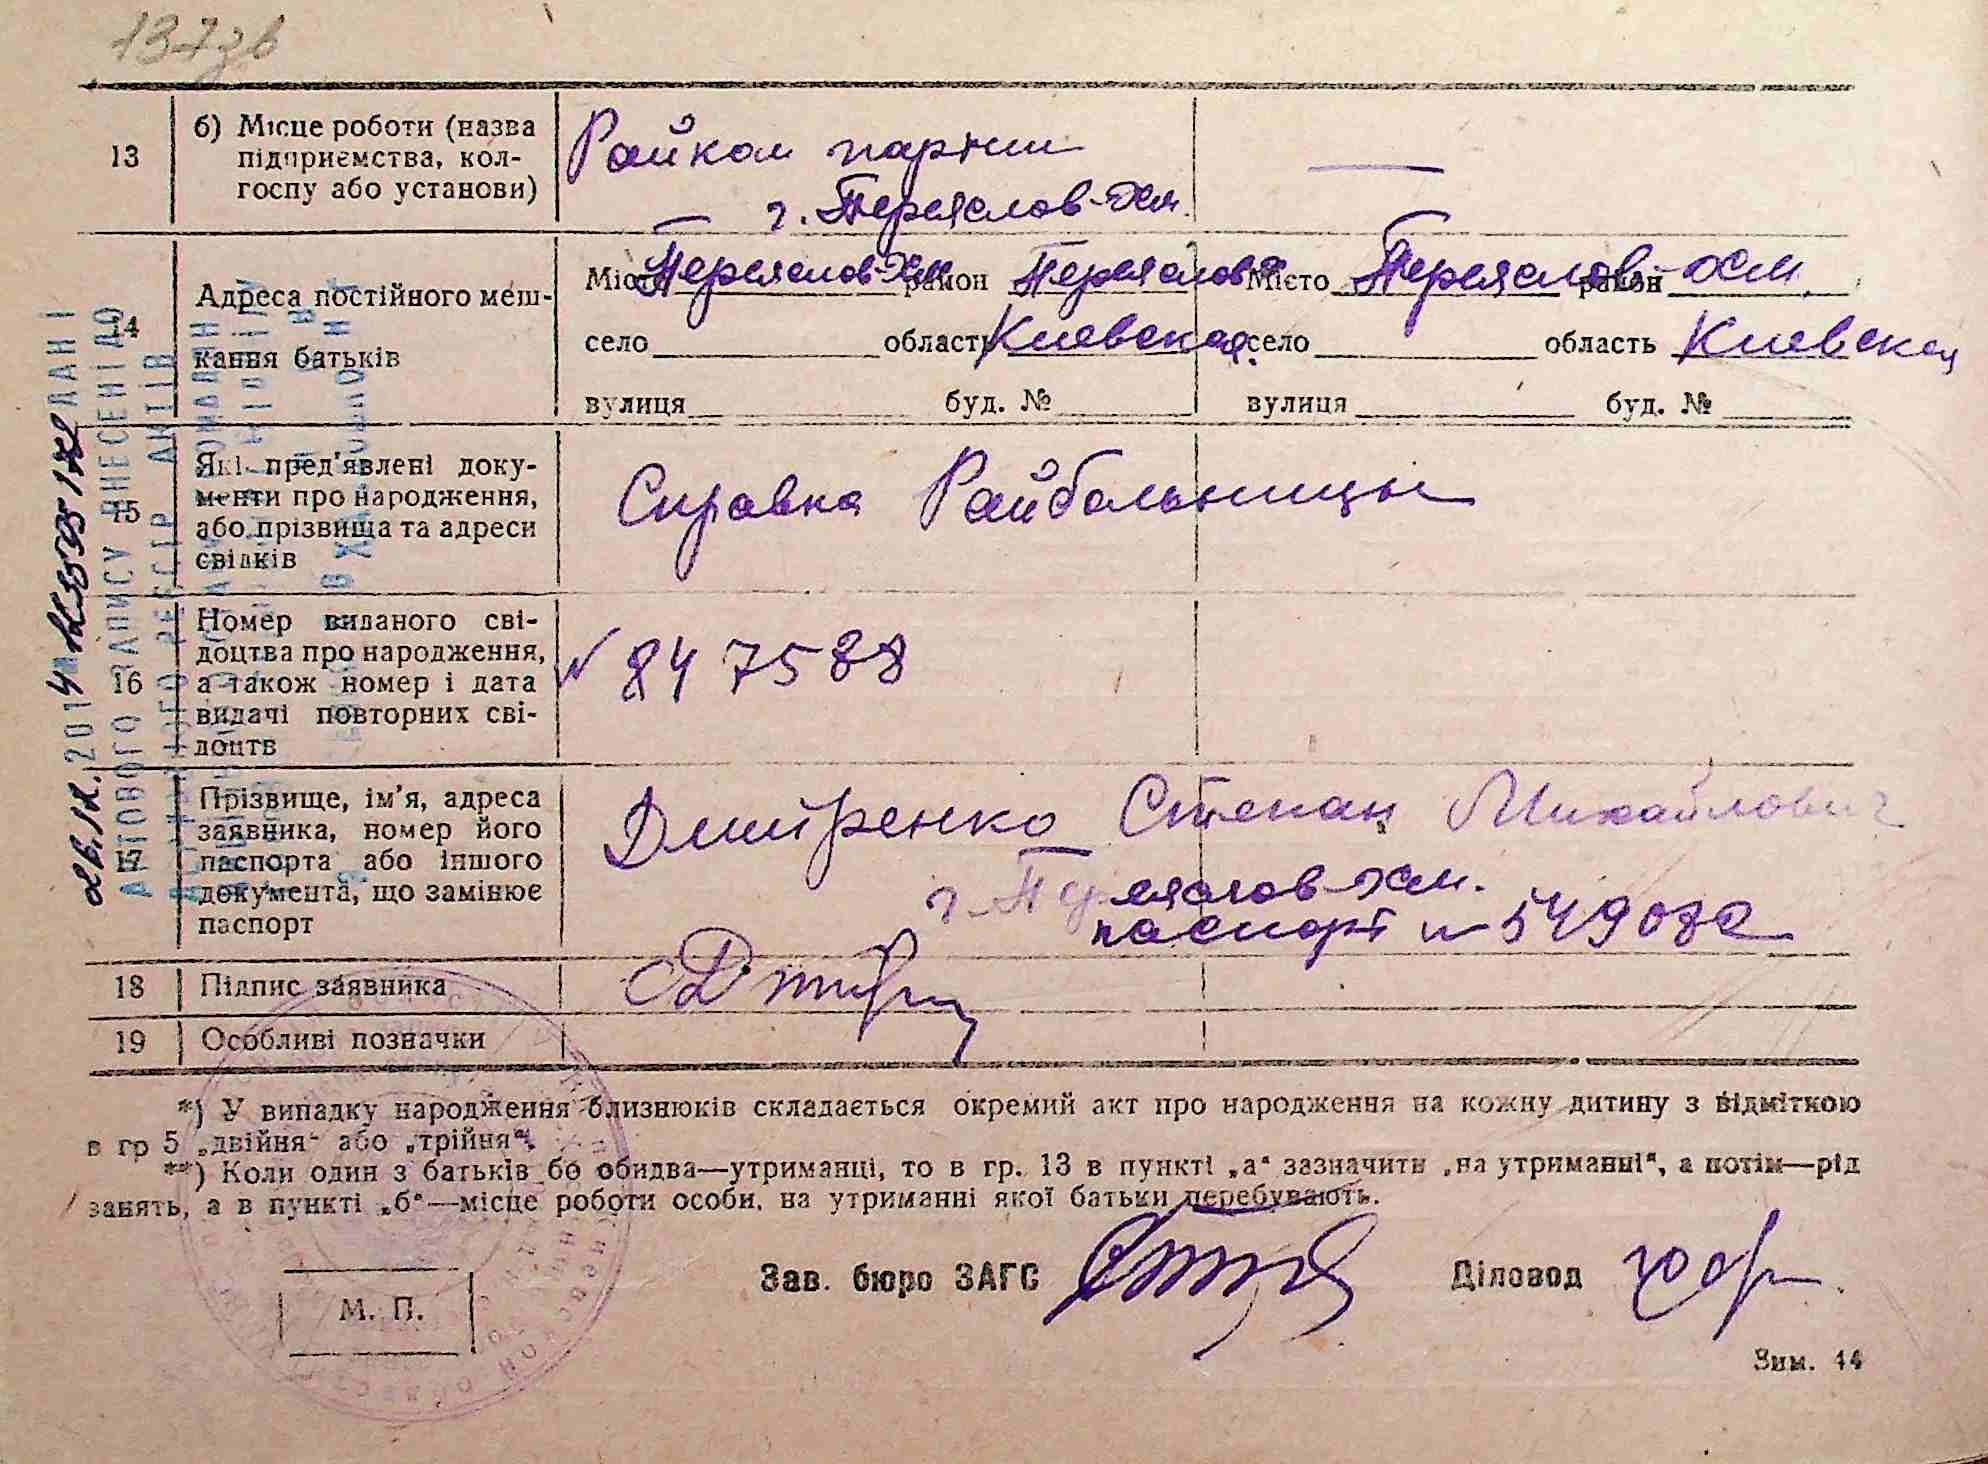 137зв
13
б) Місце роботи (назва
підприємства, кол-
госпу або установи)
Райком партии
г. Переяслов-Хм.
—
14
Адреса постійного меш-
кання батьків
Місто Переяслов-Хм район Переяслов
село область Киевская
вулиця буд. №
Місто Переяслов-Хм. район
село область Киевская
вулиця буд. №
15
Які пред'явлені доку-
менти про народження,
або прізвища та адреси
свідків
Справка Райбольницы
16
Номер виданого сві-
доцтва про народження,
а також номер і дата
видачі повторних сві-
доцтв
№ 847588
17
Прізвище, ім'я, адреса
заявника, номер його
паспорта або іншого
документа, що замінює
паспорт
Дмитренко Степан Михайлович
г. Переяслов-Хм.
паспорт №
18
Підпис заявника
19
Особливі позначки
*) У випадку народження близнюків складається окремий акт про народження на кожну дитину з відміткою
в гр 5 „двійня“ або „трійня“.
**) Коли один з батьків бо обидва—утриманці, то в гр. 13 в пункті „а“ зазначити „на утриманні“, а потім—рід
занять, а в пункті „б“—місце роботи особи, на утриманні якої батьки перебувають.
Зав. бюро ЗАГС
Діловод
М. П.
Зим. 14
ДАНІ
АКТОВОГО ЗАПИСУ ВНЕСЕНІ ДО
ДЕРЖАВНОГО РЕЄСТР АКТІВ